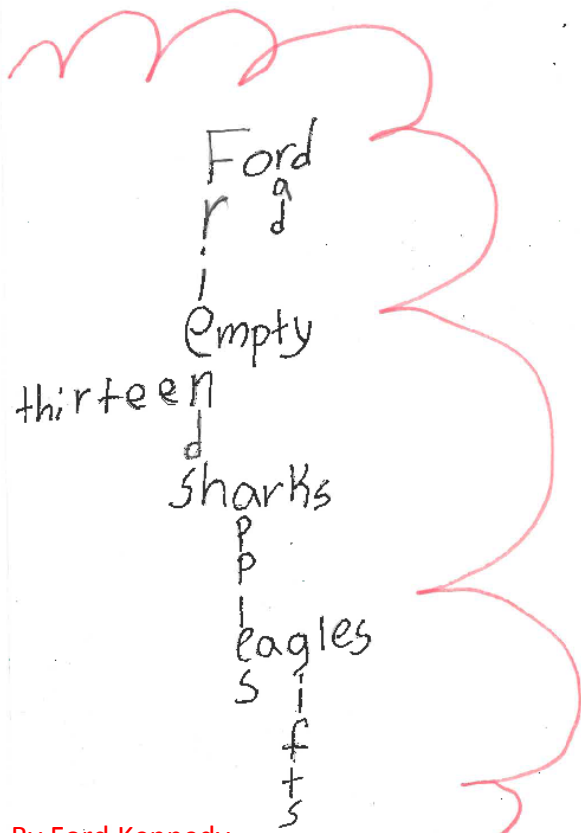 Ford
a
r d
i
empty
thirteen
d
sharks
p
p
l
eagles
s i
f
t
s
By Ford Kennedy